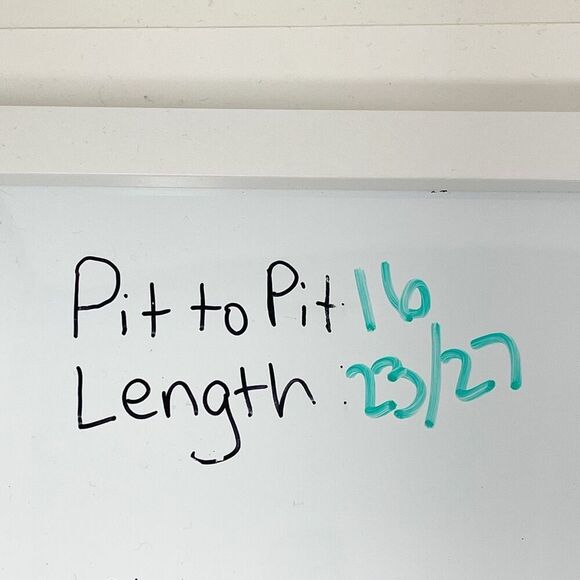 Pit to Pit: 16
Length: 23/27